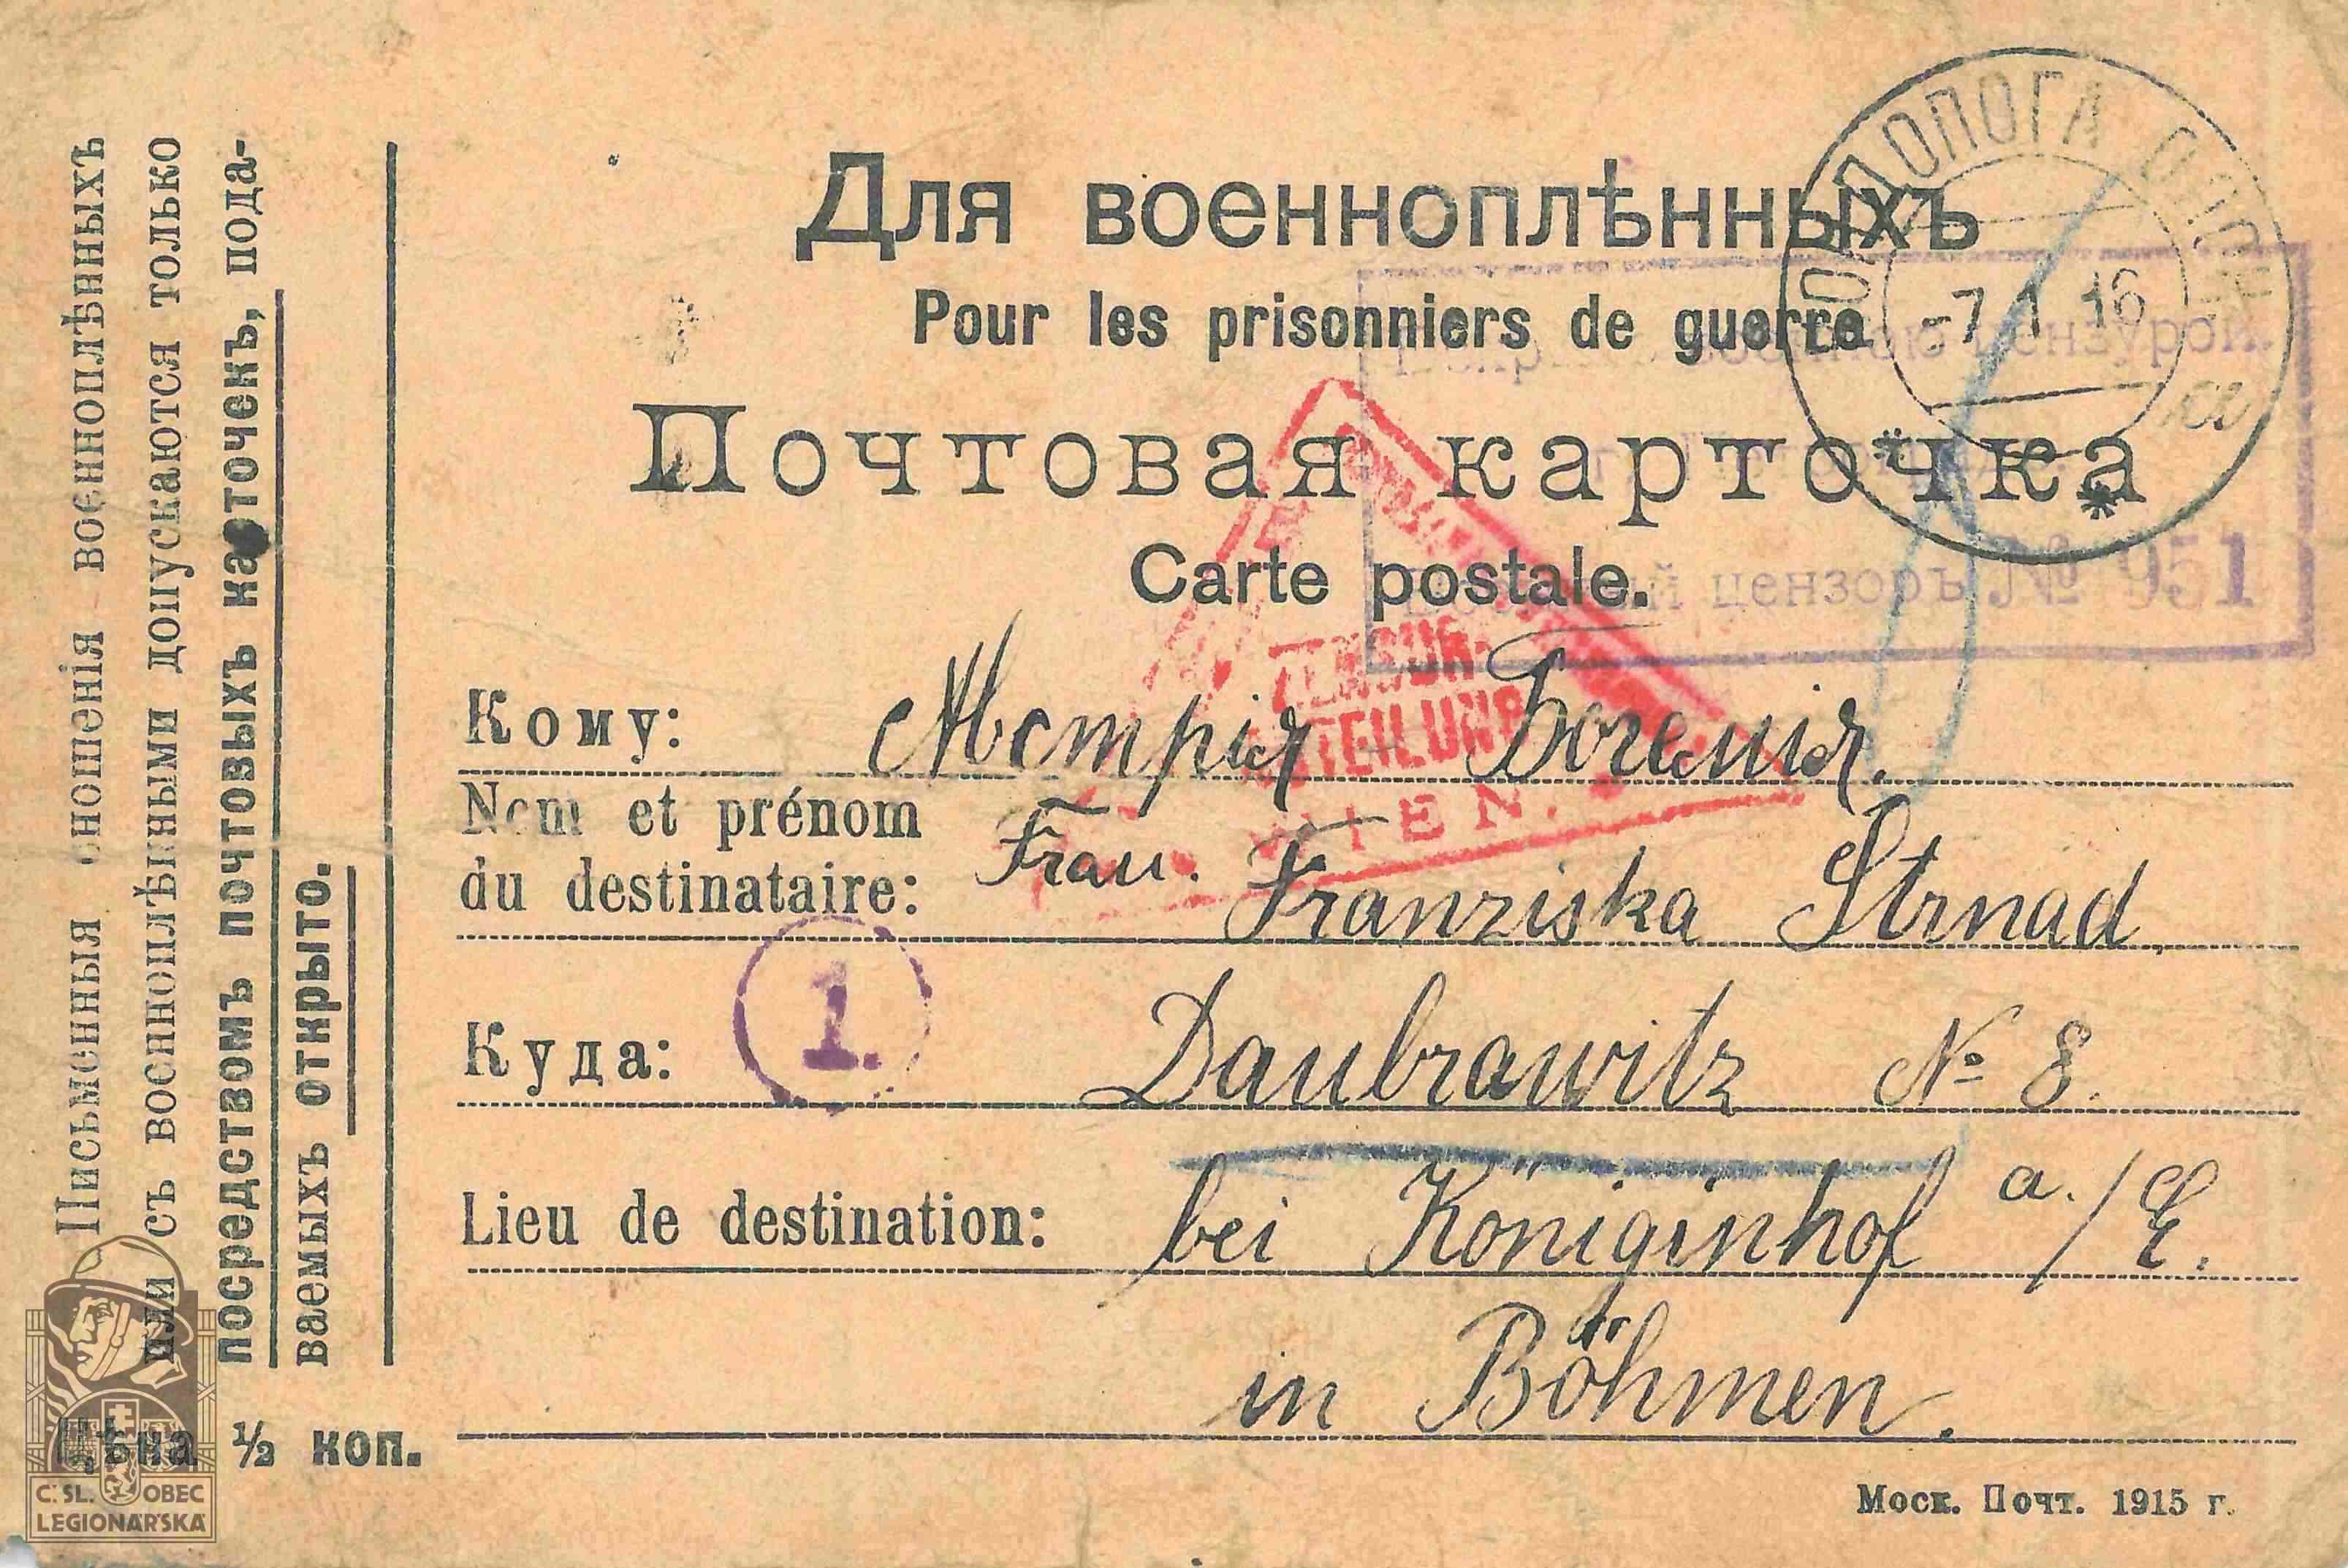 Для военноплѣнныхъ
Pour les prisonniers de guerre
Почтовая карточка
Carte postale.
-7 1 16
цензурой.
цензоръ № 951
ZENSUR-
WIEN.
Кому: Австрія - Богемія.
Nom et prénom
du destinataire: Frau. Franziska Strnad,
1.
Куда: Daubrawitz № 8.
Lieu de destination: bei Königinhof a./E.
in Böhmen.
Моск. Почт. 1915 г.
Письменныя сношенія военноплѣнныхъ
или съ военноплѣнными допускаются только
посредствомъ почтовыхъ карточекъ, пода-
ваемыхъ открыто.
Цѣна ½ коп.
Č. SL. OBEC
LEGIONÁŘSKÁ